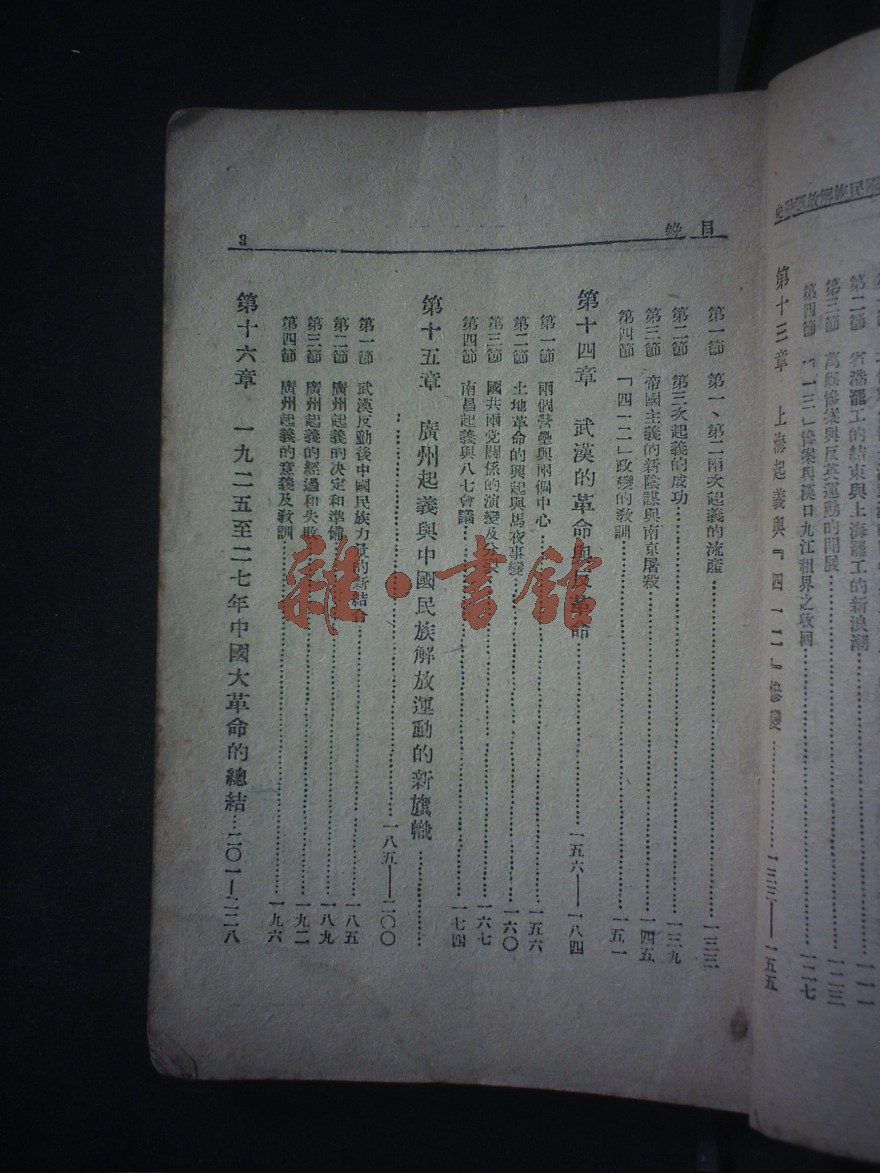 第十三章 上海起義與『四一二』慘變…………一三三—一五五
第二節 省港罷工的結束與上海罷工的新浪潮
第三節 萬縣慘案與反英運動的開展…………一二三
第四節 「一三」慘案與漢口九江租界之收回…………一二七
目錄
3
第一節 第一、第二兩次起義的流產…………一三三
第二節 第三次起義的成功…………一三九
第三節 帝國主義的新陰謀與南京屠殺…………一四五
第四節 「四一二」政變的教訓…………一五一
第十四章 武漢的革命與反革命…………一五六—一八四
第一節 兩個營壘與兩個中心…………一五六
第二節 土地革命的興起與馬夜事變…………一六〇
第三節 國共兩党關係的演變及分裂…………一六七
第四節 南昌起義與八七會議…………一七四
第十五章 廣州起義與中國民族解放運動的新旗幟…………
…………一八五—二〇〇
第一節 武漢反動後中國民族力量的新結合…………一八五
第二節 廣州起義的決定和準備…………一八九
第三節 廣州起義的經過和失敗…………一九二
第四節 廣州起義的意義及敎訓…………一九六
第十六章 一九二五至二七年中國大革命的總結…二〇一—二二八
雜·書館